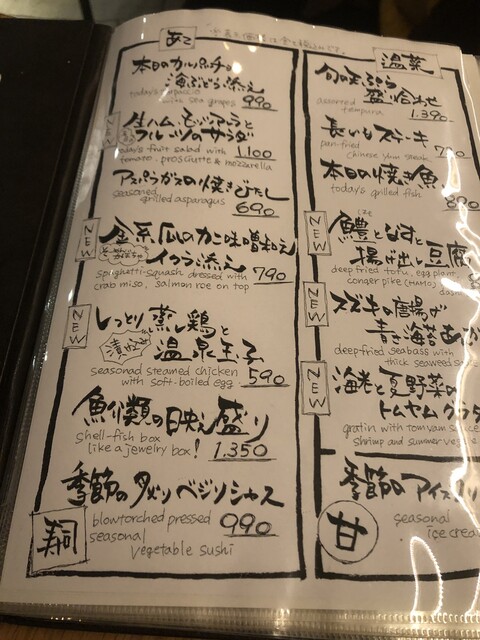 あて
本日のカルパッチョ
海ぶどう添え
today's carpaccio
with sea grapes 990
NEW
生ハム、モッツァレラと
フルーツのサラダ
today's fruit salad with 1100
tomato, proscuitte & mozzarella
アスパラガスの焼きびたし
seasoned
grilled asparagus 690
NEW
金糸瓜のカニ味噌和え
イクラ添え
spaghetti-squash dressed with 790
crab miso, salmon roe on top
NEW
しっとり蒸し鶏と
温泉玉子
seasonad steamed chicken
with soft-boiled egg 590
魚介類の日映え盛り
shell-fish box
like a jewelry box! 1,350
季節の炙りベジソシャス
寿司
blowtorched pressed 990
seasonal
vegetable sushi
温菜
旬の天ぷら
盛り合わせ
assorted
tempura 1.390
長いもステーキ
pan-fried
chinese yam steak
本日の焼き魚
today's grilled fish 890
NEW
鱧となすと
揚げ出し豆腐
deep fried tofu, egg plant,
conger pike (HAMO)
NEW
スズキの唐揚げ
青さ海苔あん
deep-fried seabass with
thick seaweed
NEW
海老と夏野菜の
トムヤムグラタン
gratin with tomyam sauce
shrimp and summer
甘
季節のアイス
seasonal
ice cream